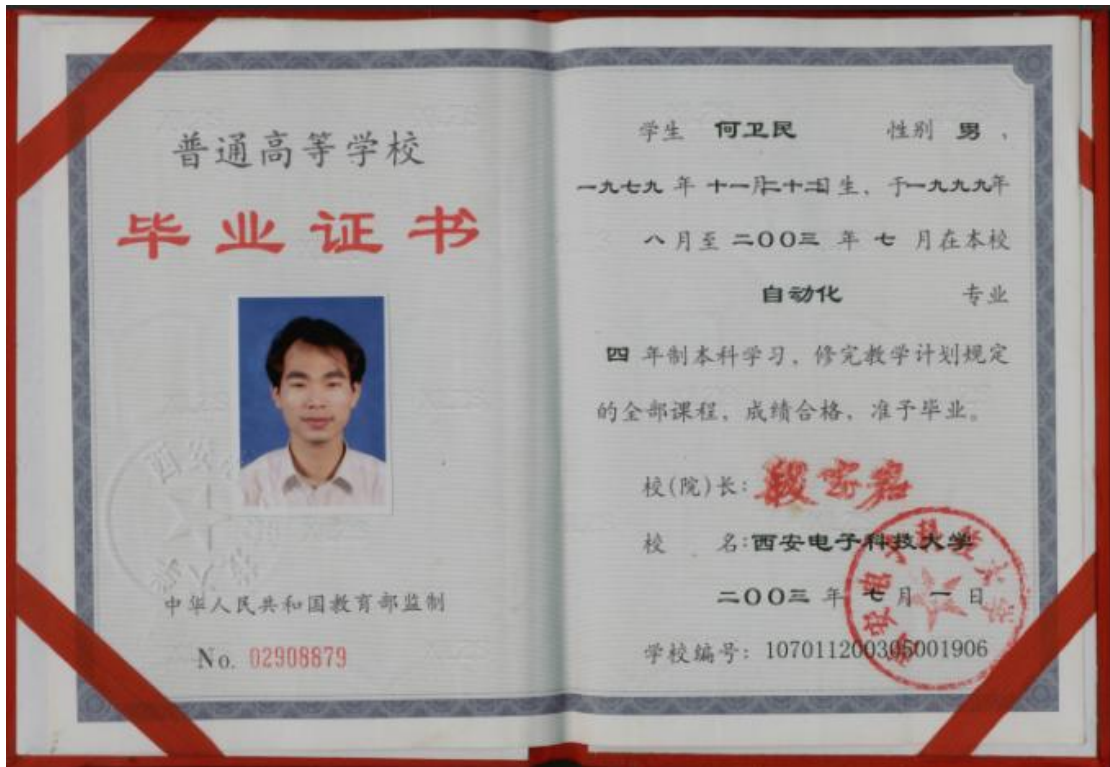 普通高等学校
毕业证书
中华人民共和国教育部监制
No. 02908879
学生 何卫民 性别 男，
一九七九 年 十一月二十二日生，于一九九九年
八月至 二00三 年 七 月在本校
自动化 专业
四 年制本科学习，修完教学计划规定
的全部课程，成绩合格，准予毕业。
校(院)长：
校 名：西安电子科技大学
二00三 年 七 月 一 日
学校编号：107011200305001906
西安电子科技大学